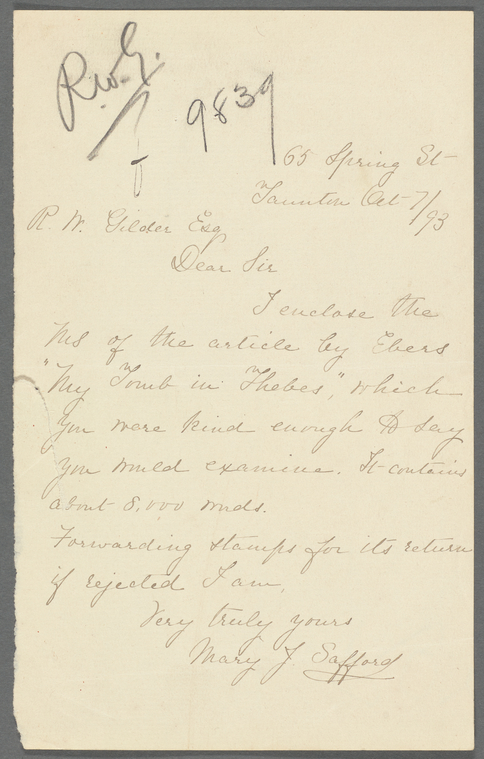 R.W.G.
9839
65 Spring St
Taunton Oct 7/93
R. W. Gilder Esq
Dear Sir
I enclose the
MS of the article by Ebers
"My Tomb in Thebes," which
you were kind enough to say
you would examine. It contains
about 8,000 words.
Forwarding stamps for its return
if rejected I am,
Very truly yours
Mary J. Safford